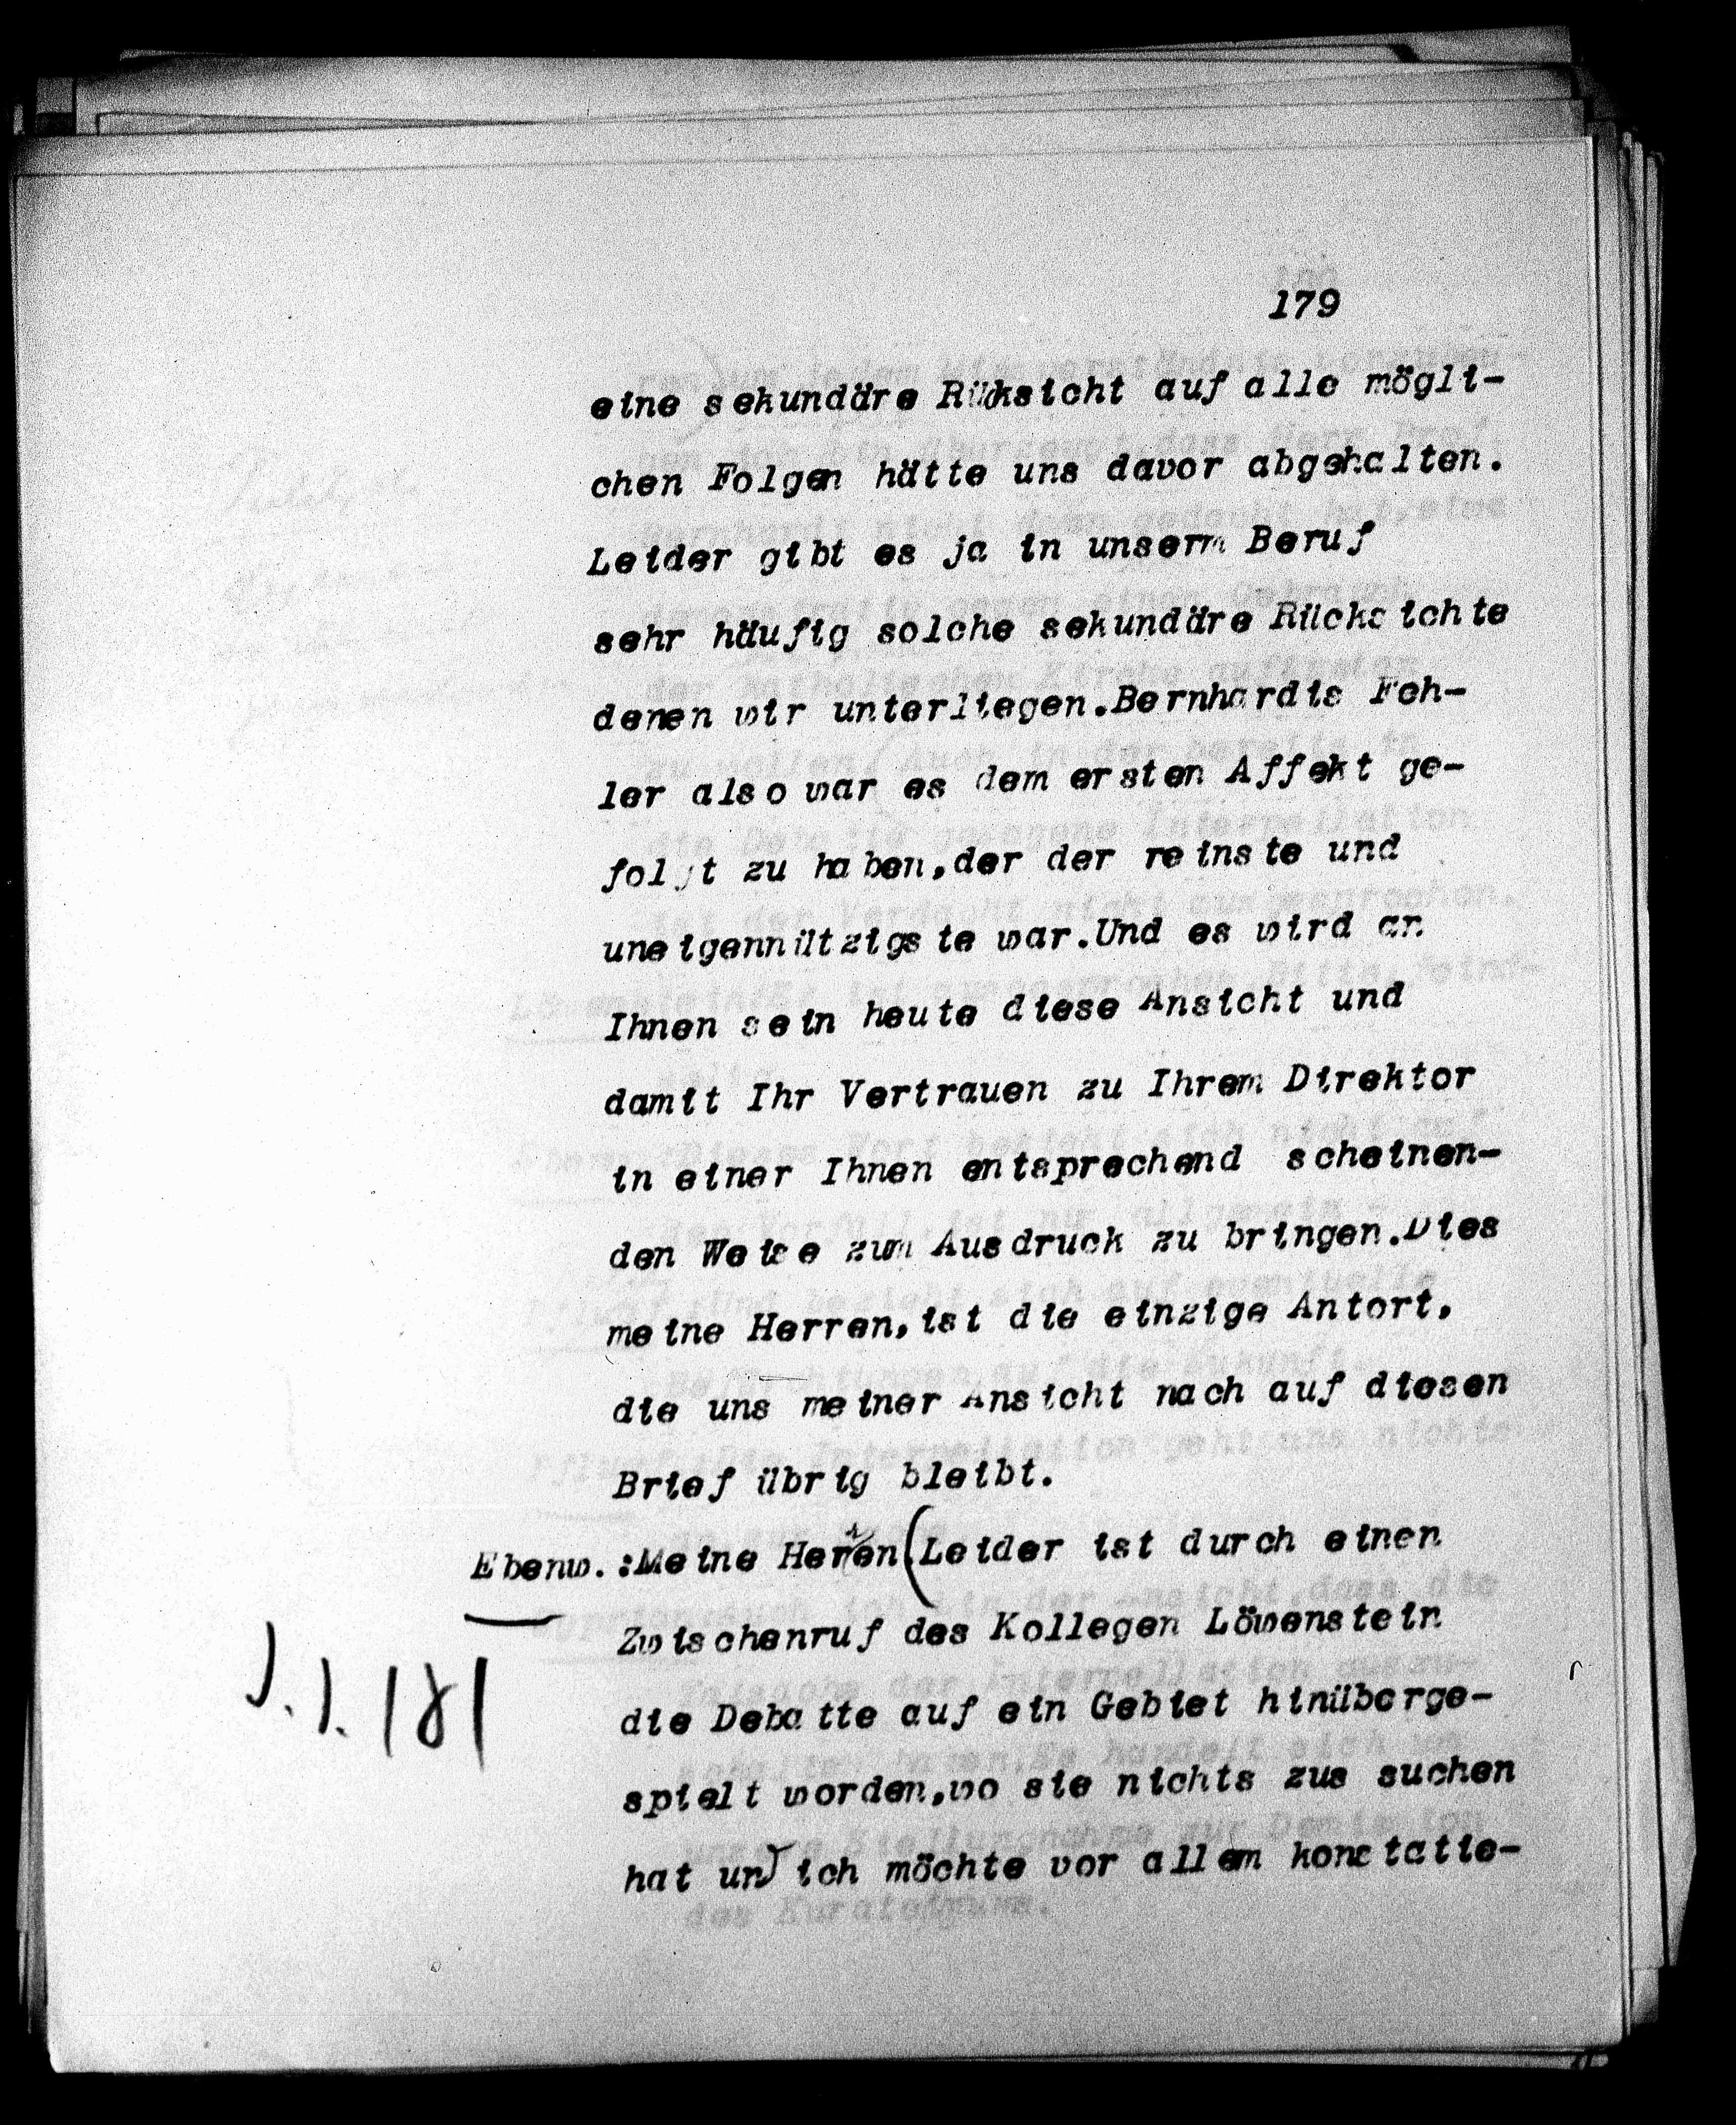 179
eine sekundäre Rücksicht auf alle mögli-
chen Folgen hätte uns davor abgehalten.
Leider gibt es ja in unserm Beruf
sehr häufig solche sekundäre Rücksichte
denen wir unterliegen.Bernhardis Feh-
ler also war es dem ersten Affekt ge-
folgt zu haben,der der reinste und
uneigennützigste war.Und es wird an
Ihnen sein heute diese Ansicht und
damit Ihr Vertrauen zu Ihrem Direktor
in einer Ihnen entsprechend scheinen-
den Weise zum Ausdruck zu bringen.Dies
meine Herren,ist die einzige Antort,
die uns meiner Ansicht nach auf diesen
Brief übrig bleibt.
Ebenw.:Meine Herren(Leider ist durch einen
Zwischenruf des Kollegen Löwenstein
die Debatte auf ein Gebiet hinüberge-
spielt worden,wo sie nichts zus suchen
hat und ich möchte vor allem konstatie-
181